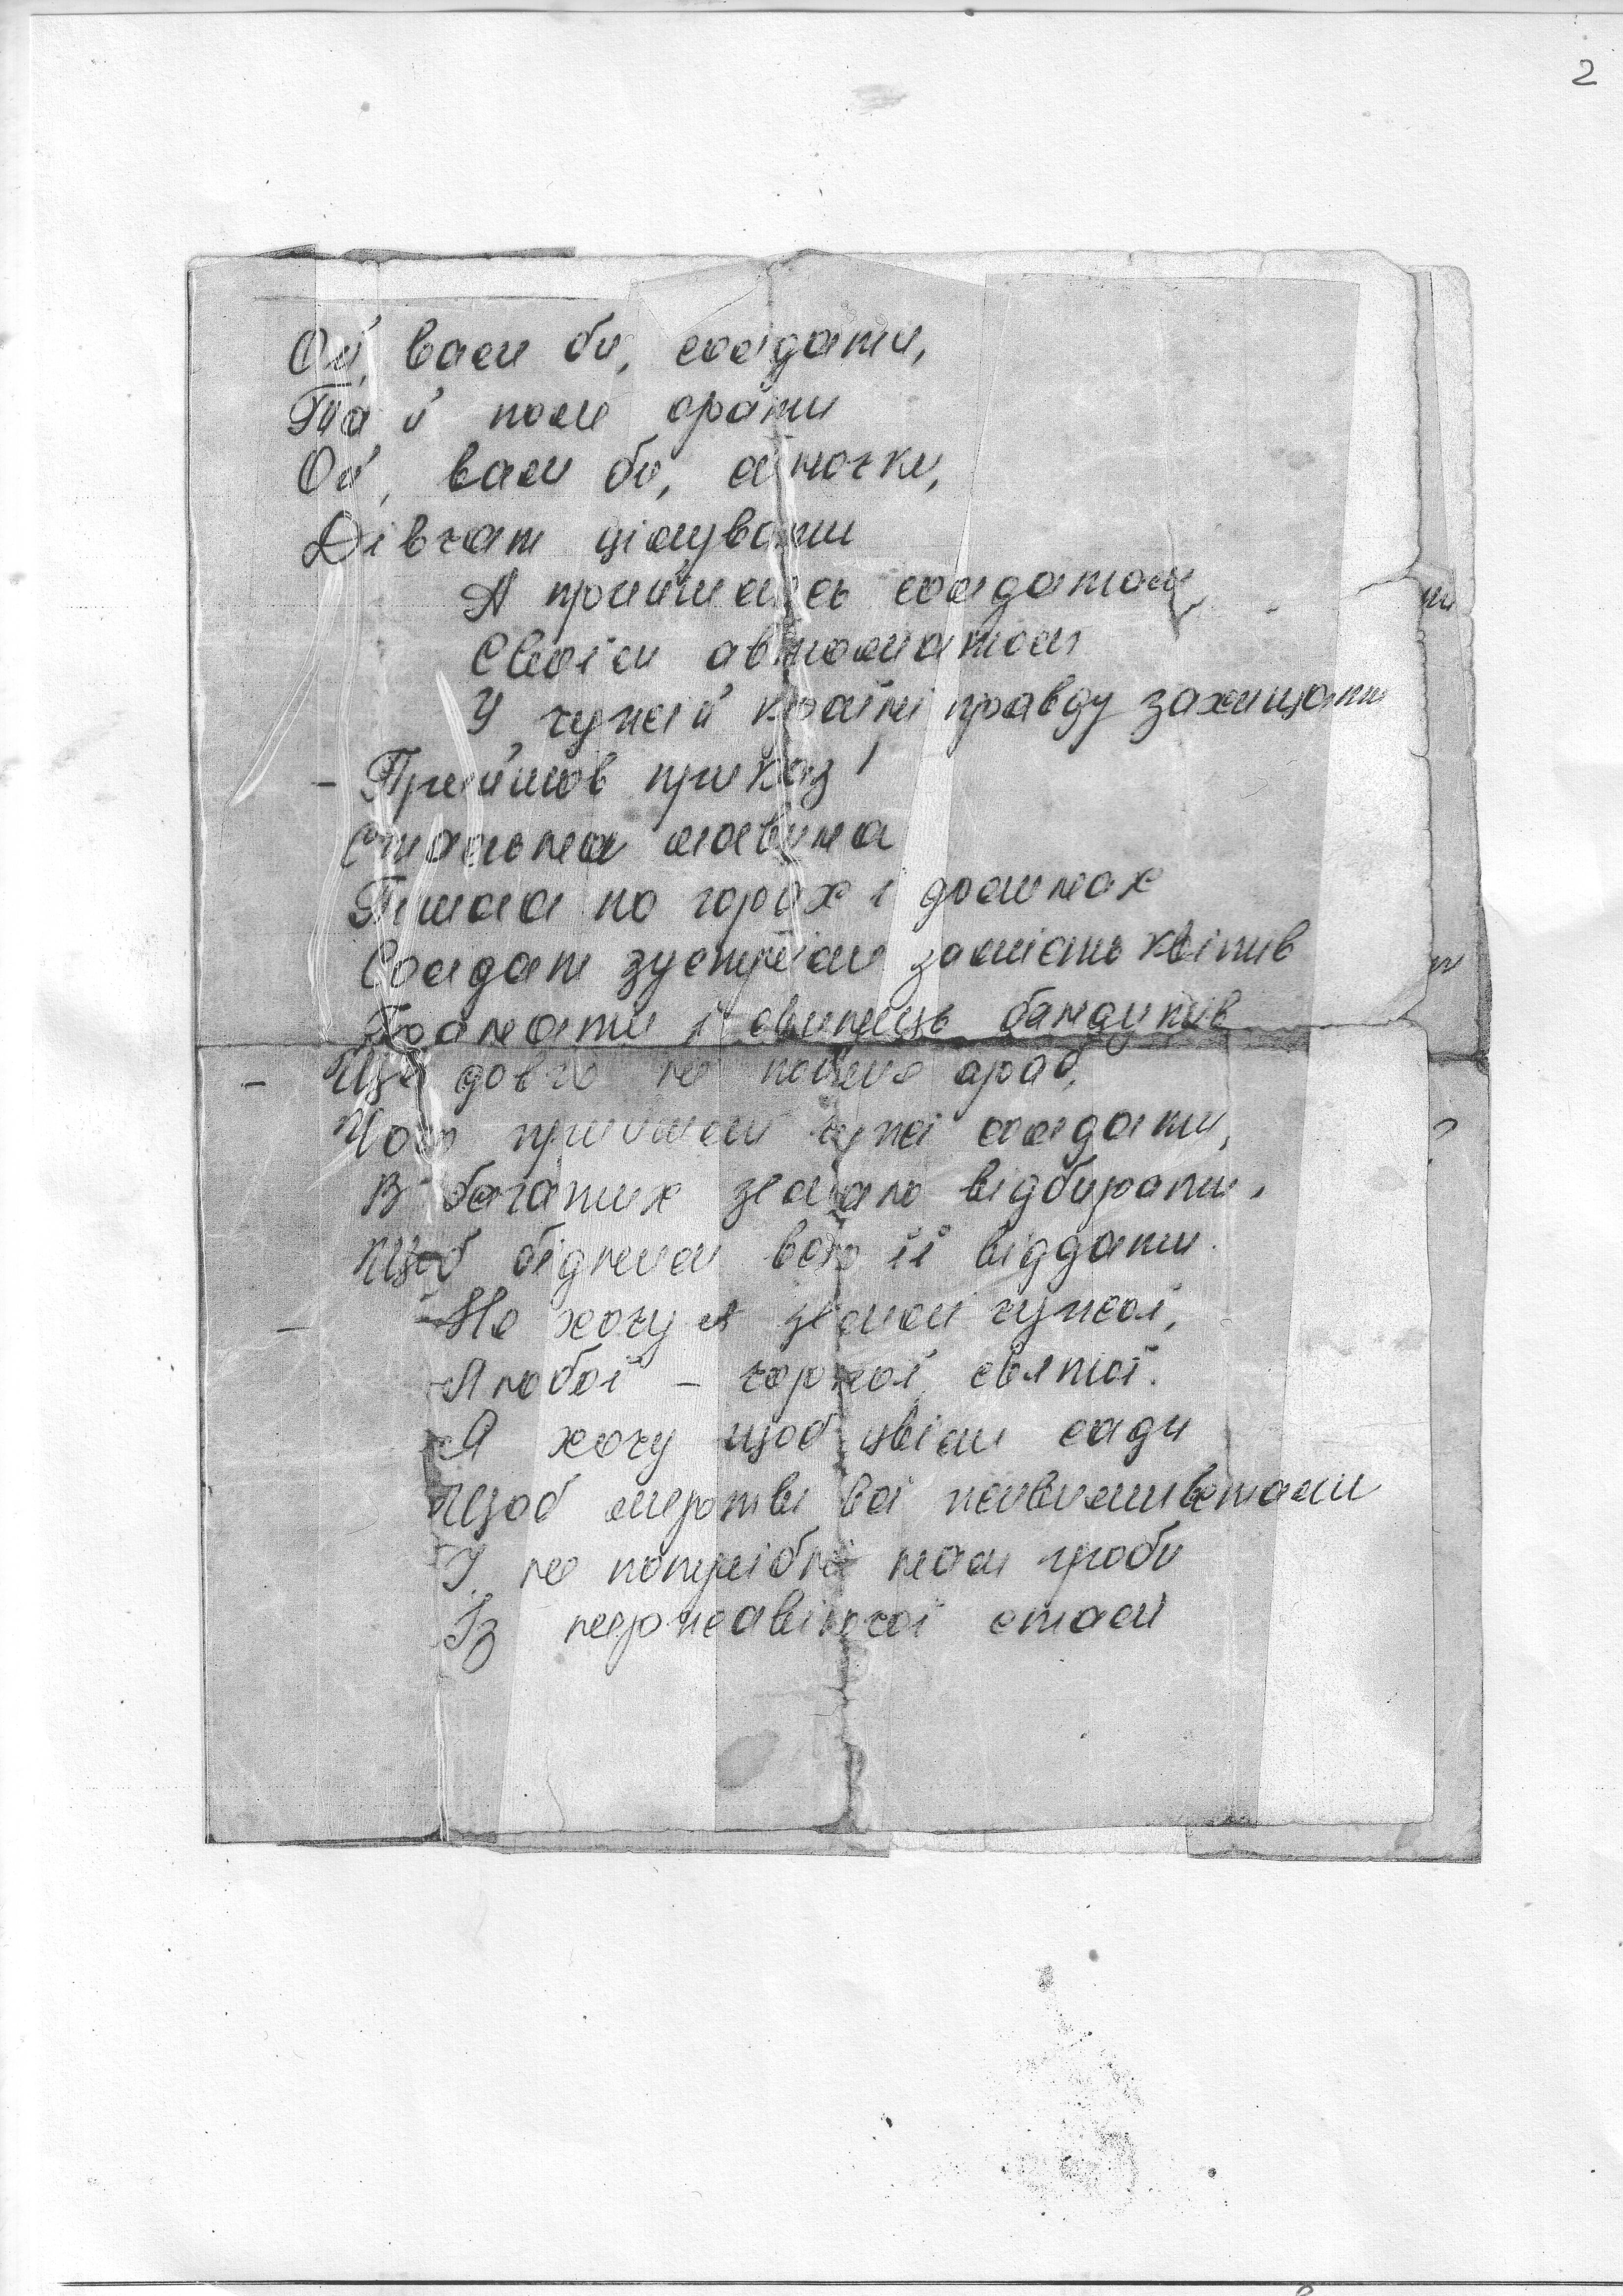 2
Ой, вам би, солдати,
Та й поле орати
Ой, вам би, синочки,
Дівчат цілувати
А прийшлось солдатам
Своїм автоматом
У чужій країні правду захищати
- Прийшов приказ!
Стальна лавина
Пішла по горах і долинах
Солдат зустріли замість квітів
Гранати і свинець бандитів
- Ще довго не пойме араб,
Чого прийшли чужі солдати,
В багатих землю відбирати,
Щоб бідним всю її віддати.
- Не хочу я землі чужої,
Любої - чорної, святої.
Я хочу щоб цвіли сади
Щоб мертві всі живими встали
І не потрібні нам гроби
Із нержавіючої сталі